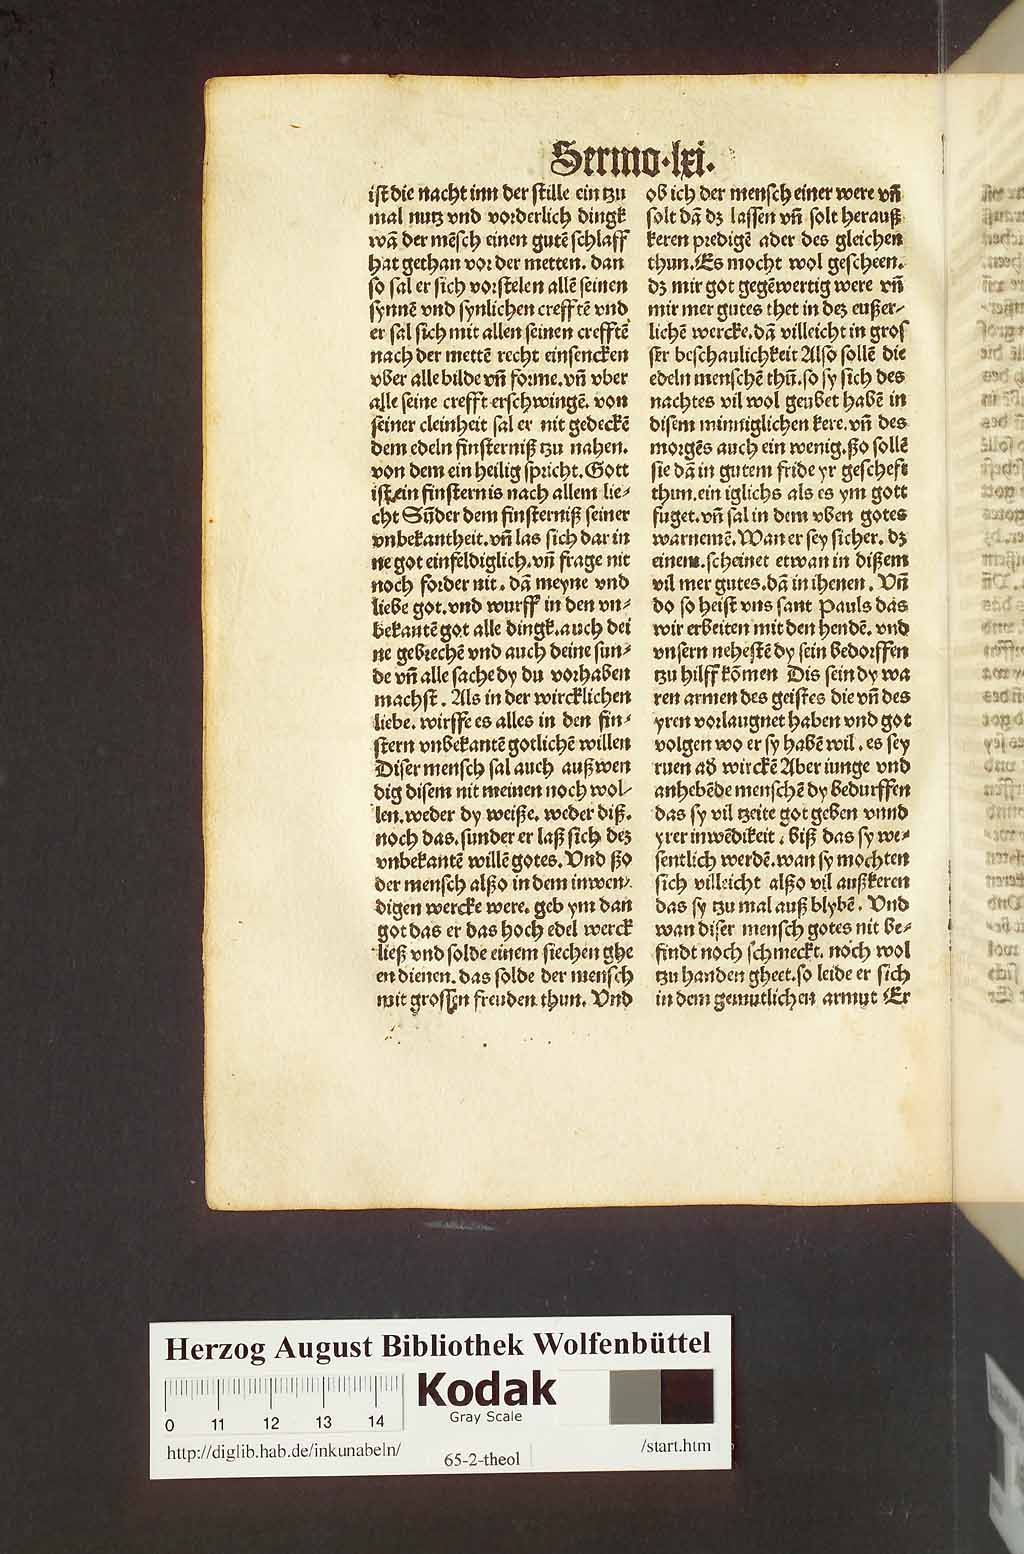 Sermo·lxi.
ist die nacht inn der stille ein tzu
mal nutz vnd vorderlich dingk
wā der mēsch einen gutē schlaff
hat gethan vor der metten. dan
so sal er sich vorstelen allē seinen
synnē vnd synlichen crefftē vnd
er sal sich mit allen seinen crefftē
nach der mettē recht einsencken
vber alle bilde vñ forme. vñ vber
alle seine crefft erschwingē. von
seiner cleinheit sal er nit gedeckē
dem edeln finsterniß tzu nahen.
von dem ein heilig spricht. Gott
ist ein finsternis nach allem lie⸗
cht Sūder dem finsterniß seiner
vnbekantheit. vñ las sich dar in
ne got einfeldiglich. vñ frage nit
noch forder nit. dā meyne vnd
liebe got. vnd wurff in den vn⸗
bekantē got alle dingk. auch dei
ne gebrechē vnd auch deine sun⸗
de vñ alle sache dy du vorhaben
machst. Als in der wircklichen
liebe. wirffe es alles in den fin⸗
stern vnbekantē gotlichē willen
Diser mensch sal auch außwen
dig disem nit meinen noch wol⸗
len. weder dy weiße. weder diß.
noch das. sunder er laß sich dez
vnbekantē willē gotes. Vnd ßo
der mensch alßo in dem inwen⸗
digen wercke were. geb ym dan
got das er das hoch edel werck
ließ vnd solde einem siechen ghe
en dienen. das solde der mensch
mit grossen freuden thun. Vnd
ob ich der mensch einer were vñ
solt dā dz lassen vñ solt herauß
keren predigē ader des gleichen
thun. Es mocht wol gescheen.
dz mir got gegēwertig were vñ
mir mer gutes thet in dez eußer⸗
lichē wercke. dā villeicht in gros
ser beschaulichkeit Also sollē die
edeln menschē thū. so sy sich des
nachtes vil wol geubet habē in
disem minniglichen kere. vñ des
morgēs auch ein wenig. ßo sollē
sie dā in gutem fride yr gescheft
thun. ein iglichs als es ym gott
fuget. vñ sal in dem vben gotes
warnemē. Wan er sey sicher. dz
einem. scheinet etwan in dißem
vil mer gutes. dā in ihenen. Vñ
do so heist vns sant Pauls das
wir erbeiten mit den hendē. vnd
vnsern nehestē dy sein bedorffen
tzu hilff kōmen Dis sein dy wa
ren armen des geistes die vñ des
yren vorlaugnet haben vnd got
volgen wo er sy habē wil. es sey
ruen ad wirckē Aber iunge vnd
anhebēde menschē dy bedurffen
das sy vil tzeite got geben vnnd
yrer inwēdikeit. biß das sy we⸗
sentlich werdē. wan sy mochten
sich villeicht alßo vil außkeren
das sy tzu mal auß blybē. Vnd
wan diser mensch gotes nit be⸗
findt noch schmeckt. noch wol
tzu handen gheet. so leide er sich
in dem gemutlichen armut Er
Herzog August Bibliothek Wolfenbüttel
0 11 12 13 14
Kodak
Gray Scale
http://diglib.hab.de/inkunabeln/
65-2-theol
/start.htm